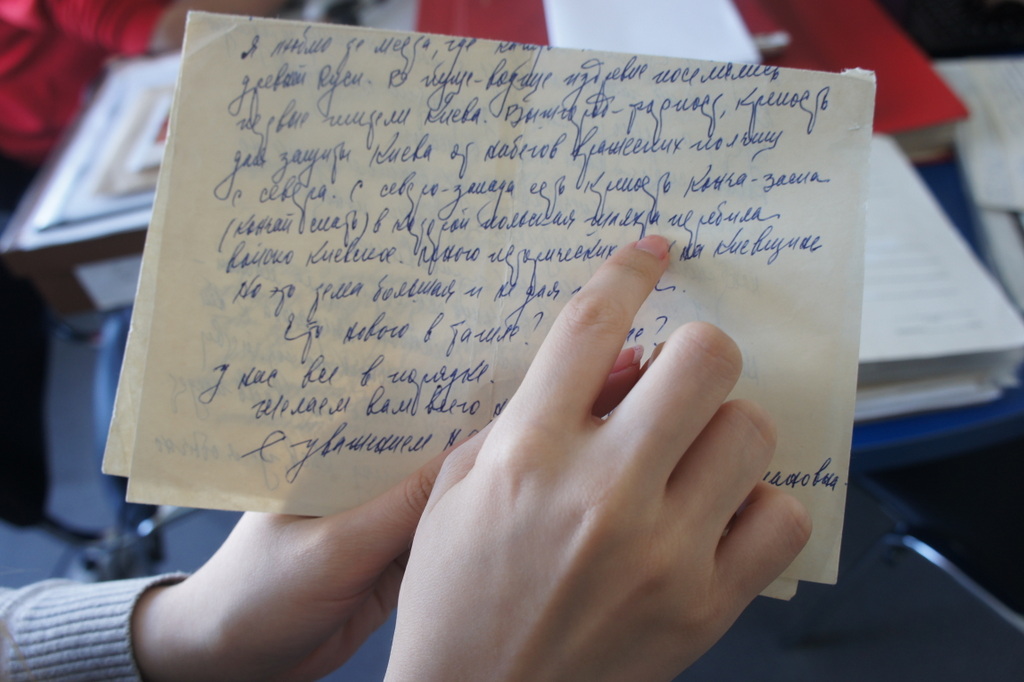 Я люблю те места, где
древней Руси. В Пуще-Водице издревле поселились
первые жители Киева. Вышгород- крепость
для защиты Киева от набегов вражеских полчищ
с севера. С северо-запада есть крепость Конча-Заспа
(кончай спать) в которой польская шляхта перебила
войско Киевское. Много исторических на Киевщине
Но это тема большая и не для
Что нового в Тагиле?
У нас все в порядке.
Желаем вам всего
С уважением